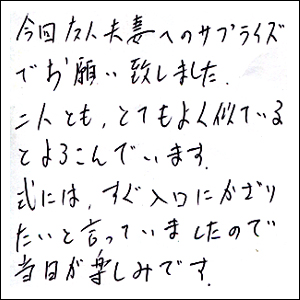 今回友人夫妻へのサプライズ
でお願い致しました.
二人とも,とてもよく似ている
とよろこんでいます.
式には,すぐ入口にかざり
たいと言っていましたので
当日が楽しみです.